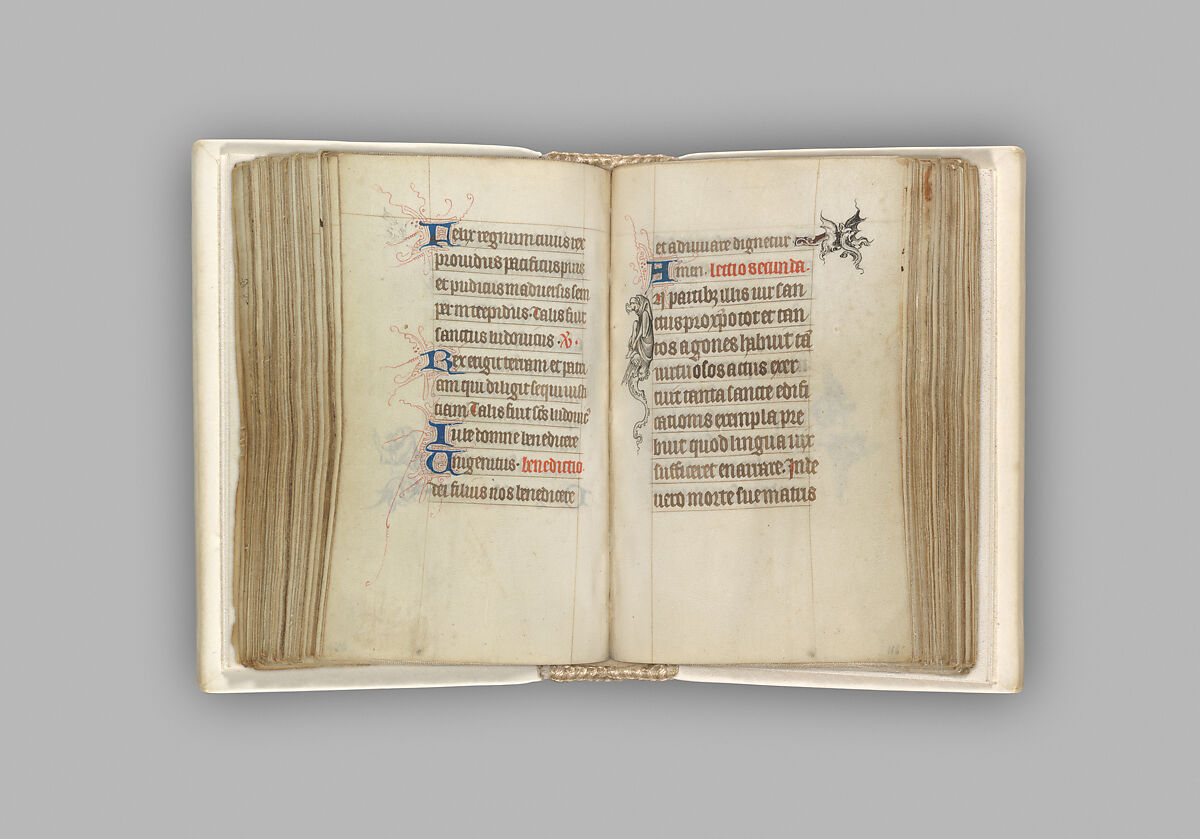 Felix regnum cuius rex
prouidus pacificus pius
et pudicus in aduersis sem
per intrepidus. Talis fuit
sanctus ludouicus.
Rex erigit terram et patri
am qui diligit sequi iusti
ciam Talis fuit scs ludouic
Iube domne benedicere
Unigenitus. benedictio.
dei filius nos benedicere
et adiuuare dignetur
Amen. lectio secunda.
partibz illis uir san
ctus pro xpo tot et tan
tos agones habuit
uirtuosos actus exer
cuit tanta sancte edifi
cationis exempla pre
buit quod lingua uix
sufficeret enarrare. Inde
uero morte sue matris